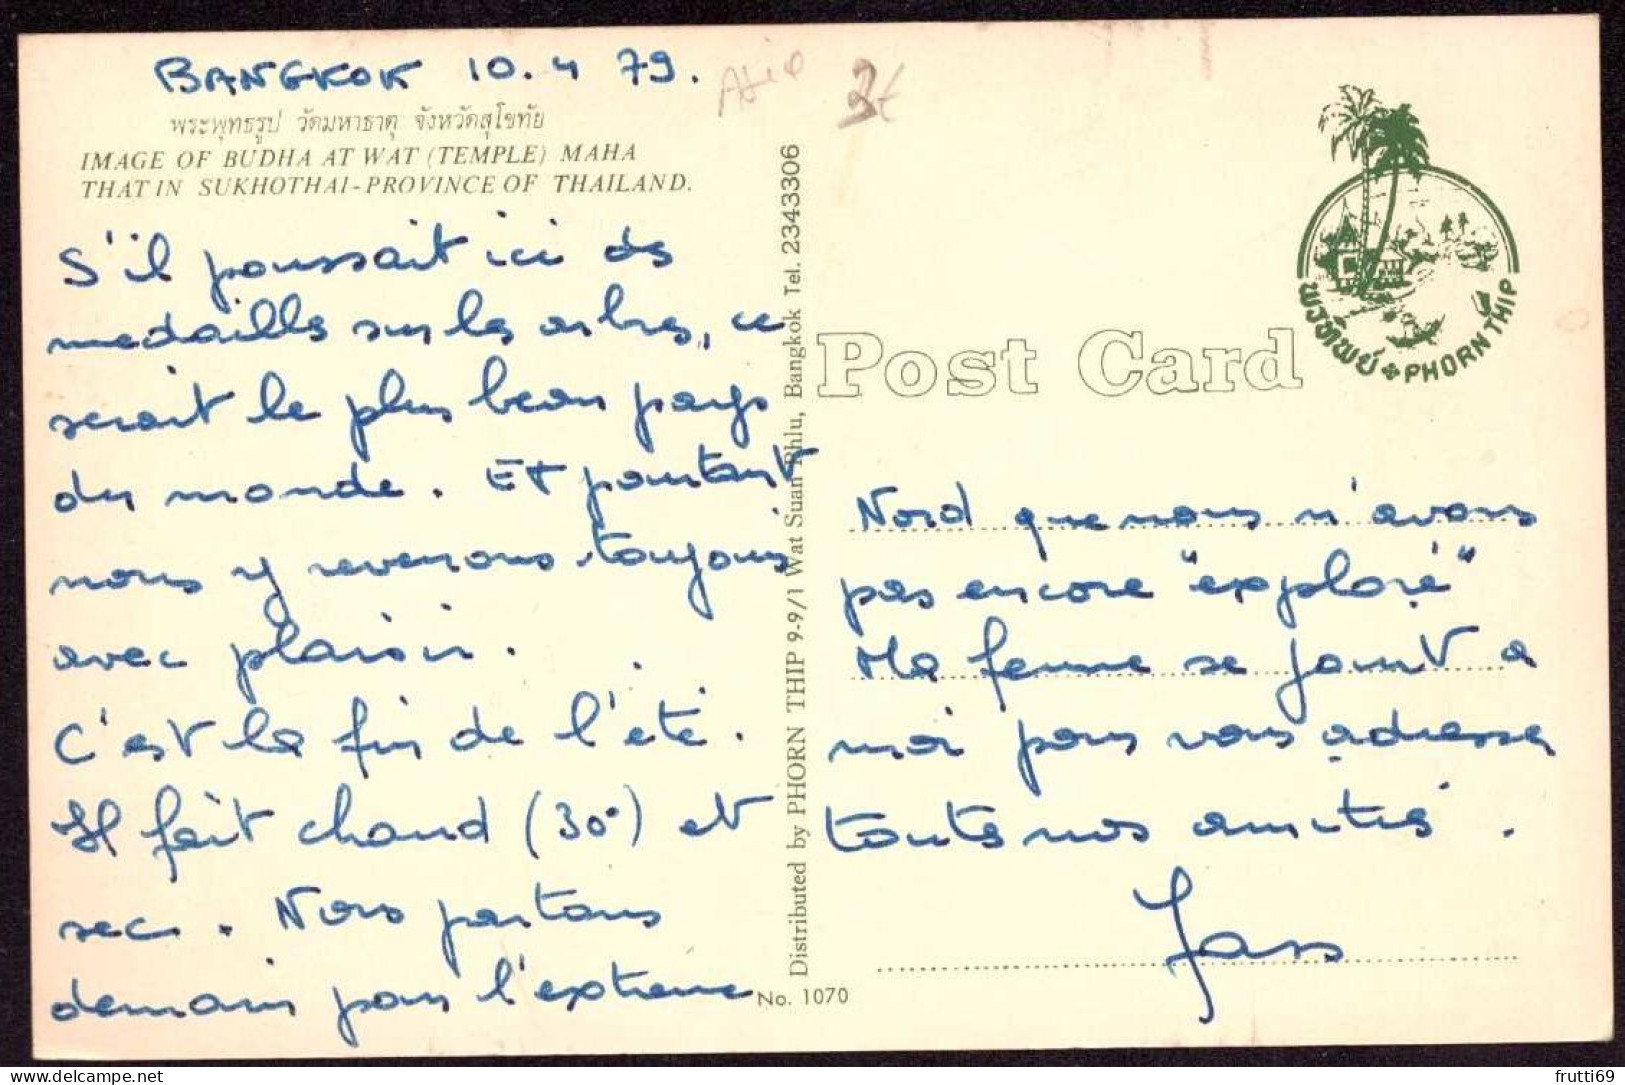 BANGKOK 10.4 79.
พระพุทธรูป วัดมหาธาตุ จังหวัดสุโขทัย
IMAGE OF BUDHA AT WAT (TEMPLE) MAHA
THAT IN SUKHOTHAI-PROVINCE OF THAILAND.
S'il poussait ici des
medailles sur les arbres, ce
serait le plus beau pays
du monde. Et pourtant
nous y revenons toujours
avec plaisir.
C'est la fin de l'été.
Il fait chaud (30°) et
sec. Nous partons
demain pour l'extreme
Distributed by PHORN THIP 9-9/1 Wat Suan Phlu, Bangkok Tel. 2343306
No. 1070
3€
Post Card
พรทิพย์ PHORN THIP
Nord que nous n'avons
pas encore "exploré"
Ma femme se joint a
moi pour vous adresser
toutes nos amitiés.
frutti69